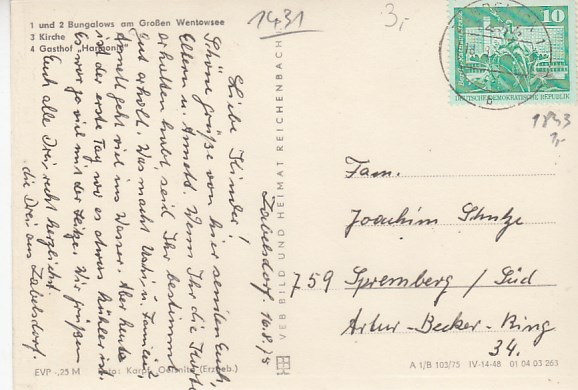 1 und 2 Bungalows am Großen Wentowsee
3 Kirche
4 Gasthof „Harmonie“
1431
3,-
10
DEUTSCHE DEMOKRATISCHE REPUBLIK
1833
1,-
Zabelsdorf, 16.8.75
Liebe Kinder!
Schöne Grüße von hier senden Euch,
Eltern u. Annett. Wenn Ihr die Karte
erhalten habt, seid Ihr bestimmt
gut erholt. Was macht u. Familie?
Annett geht viel ins Wasser. Aber heute
ist der erste Tag, wo es etwas kühler ist.
Es war so viel mit der Hitze. Wir grüßen
Euch alle Drei recht herzlichst.
die Drei aus Zabelsdorf.
VEB BILD UND HEIMAT REICHENBACH
Fam.
Joachim Schulze
759 Spremberg / Süd
Artur-Becker-Ring
34.
EVP -,25 M
Foto: Karpf, Oelsnitz (Erzgeb.)
A 1/B 103/75 IV-14-48 01 04 03 263